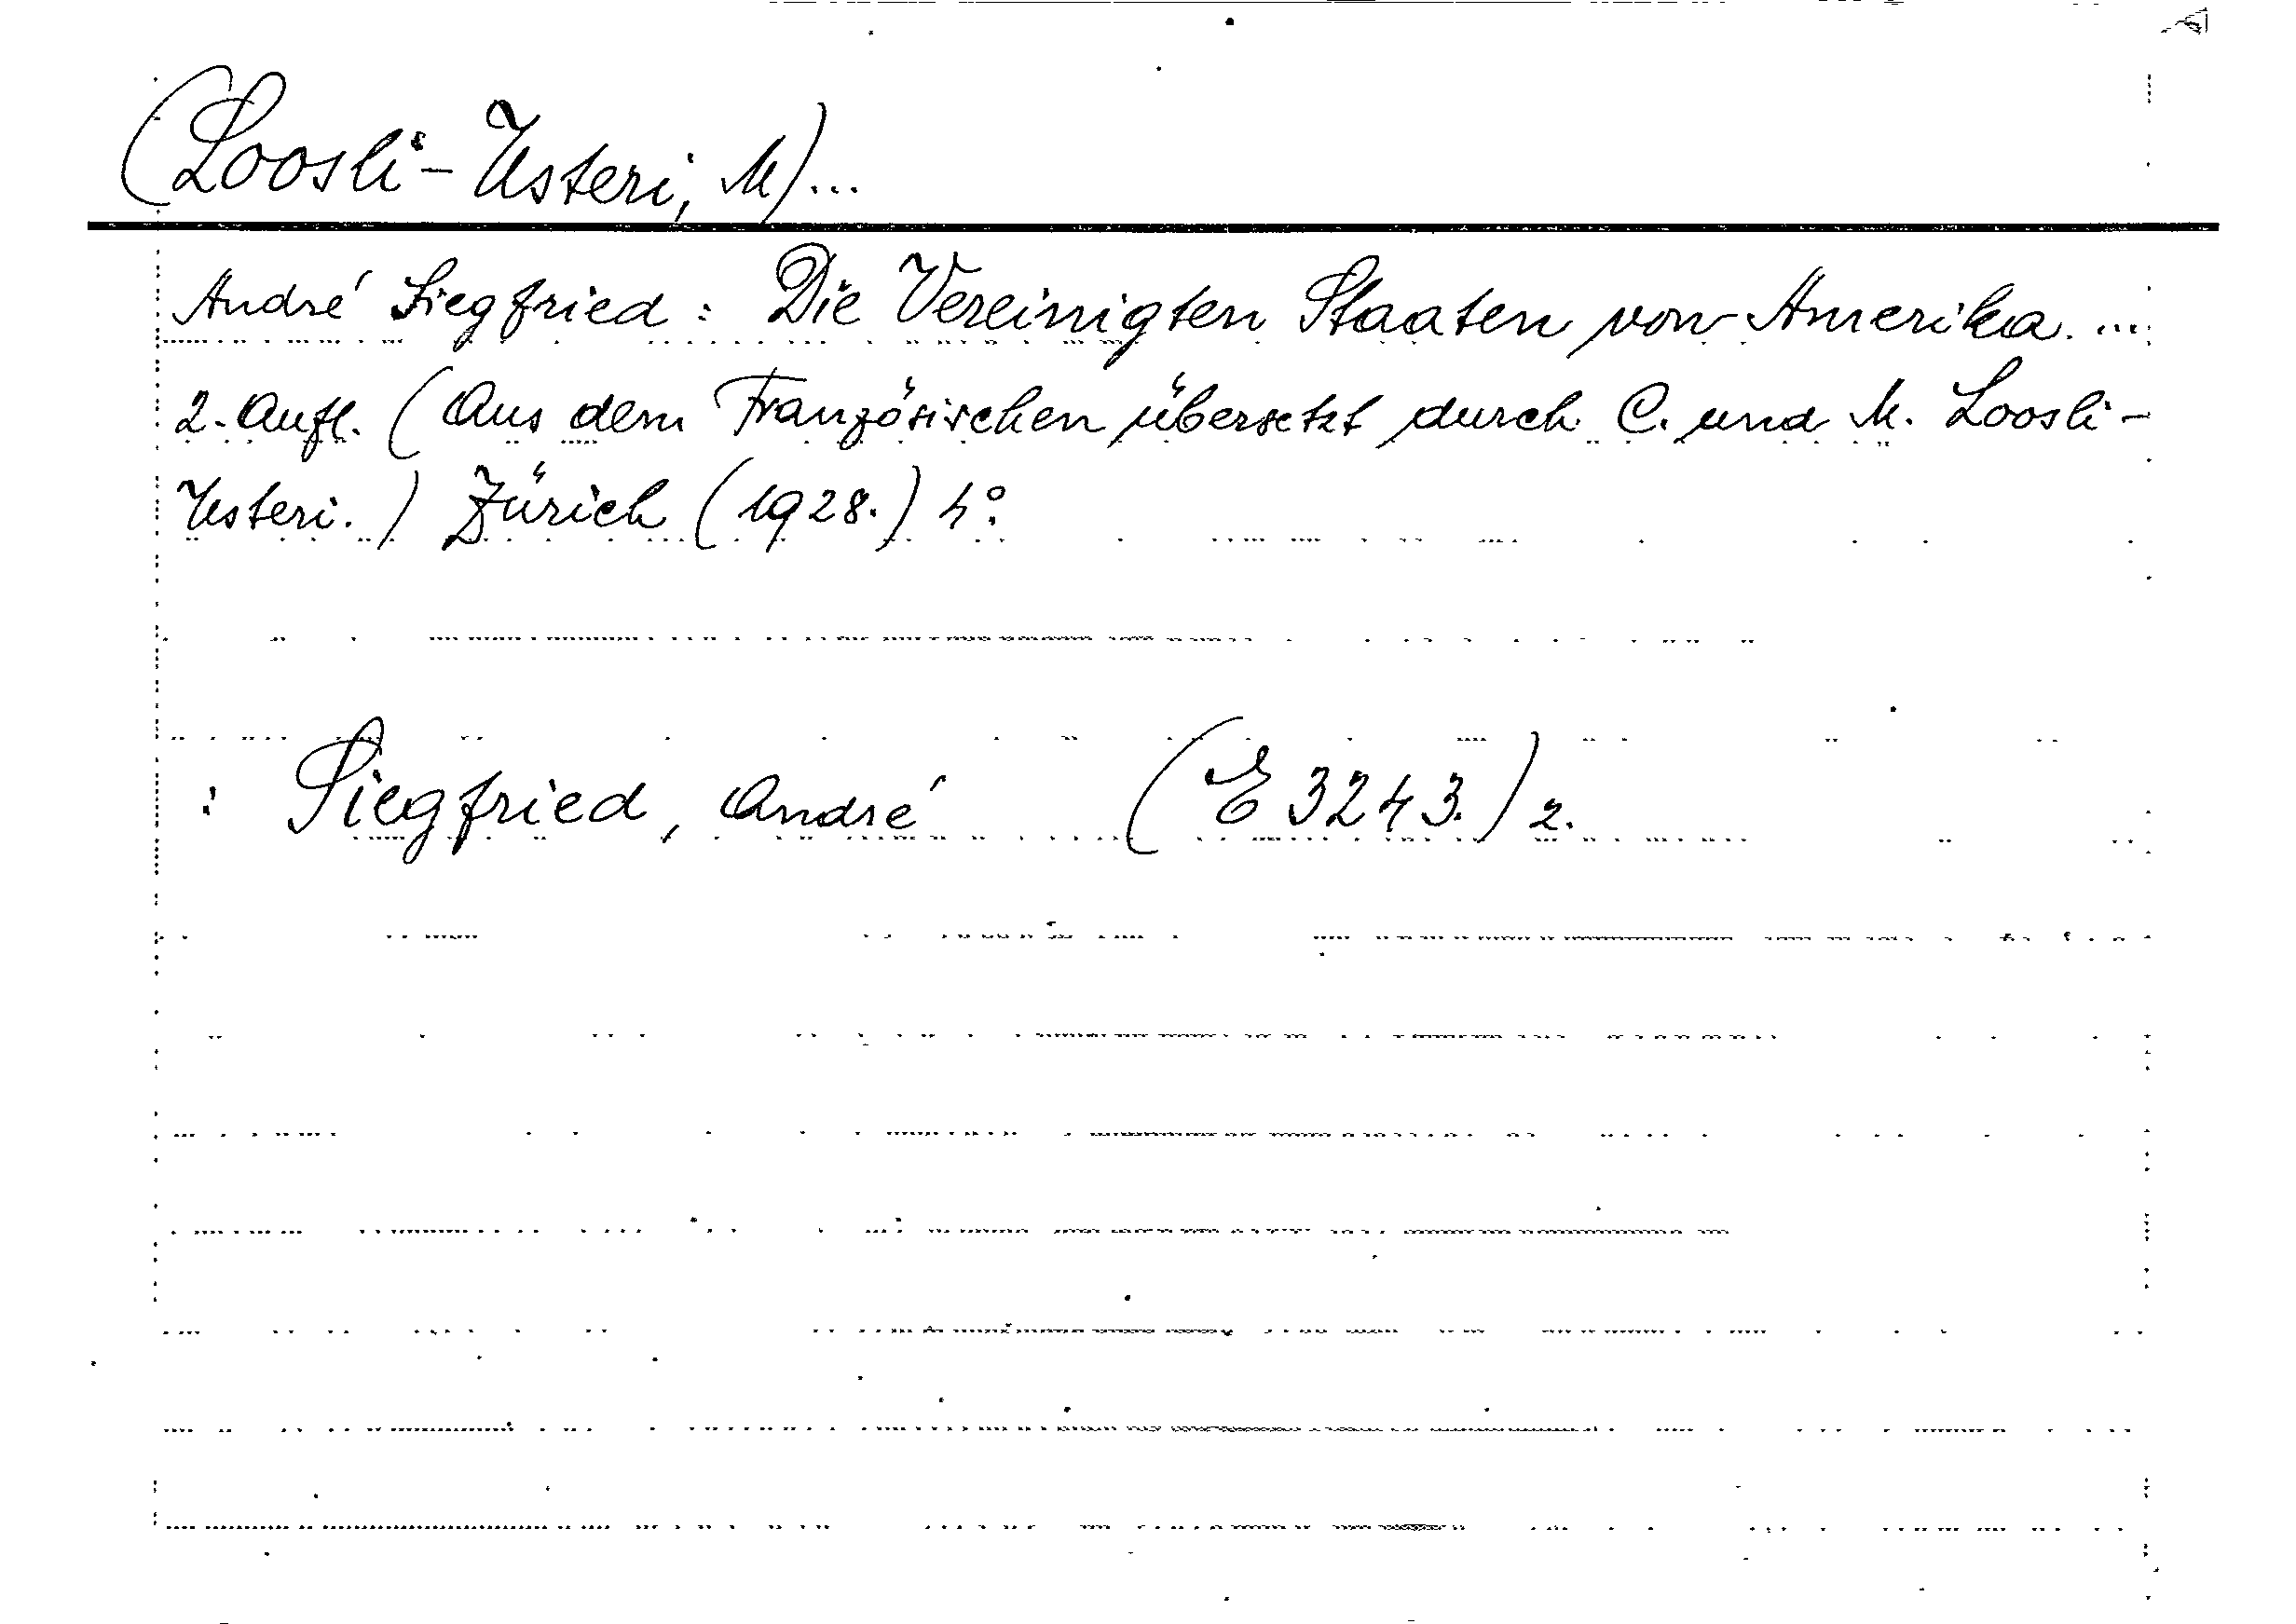 (Loosli-Usteri, M)...
André Siegfried: Die Vereinigten Staaten von Amerika. ...
2. Aufl. (Aus dem Französischen übersetzt durch C. und M. Loosli-
Usteri.) Zürich (1928.) 4°.
: Siegfried, André (E 3243.) 2.